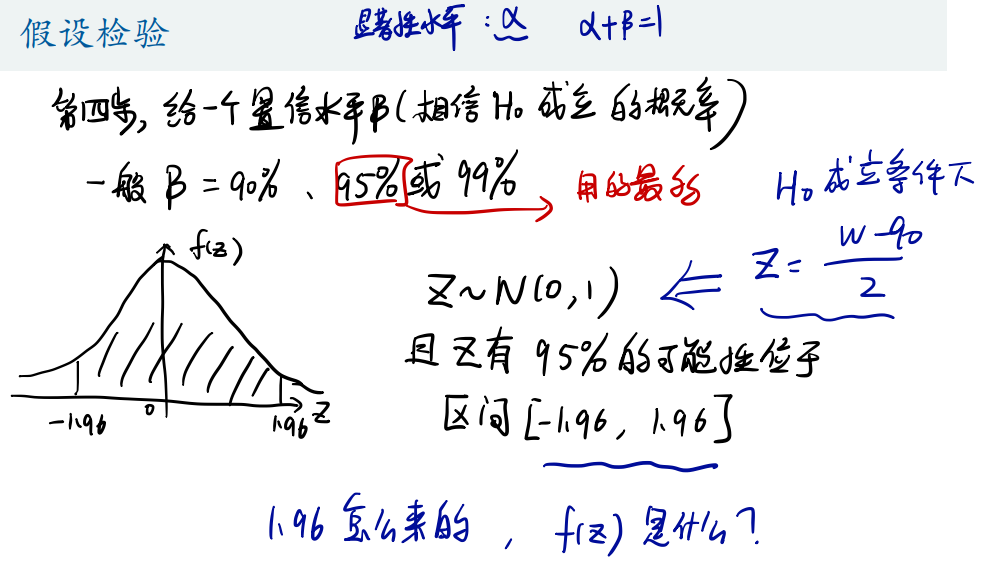 假设检验
显著性水平：α α+β=1
第四步，给一个置信水平β(相信H₀成立的概率)
一般β=90%、95%或99%
用的最多
H₀成立条件下
Z=(W-90)/2
f(z)
Z~N(0,1) ⇐
且Z有95%的可能性位于
区间[-1.96, 1.96]
-1.96 0 1.96 Z
1.96怎么来的，f(z)是什么?